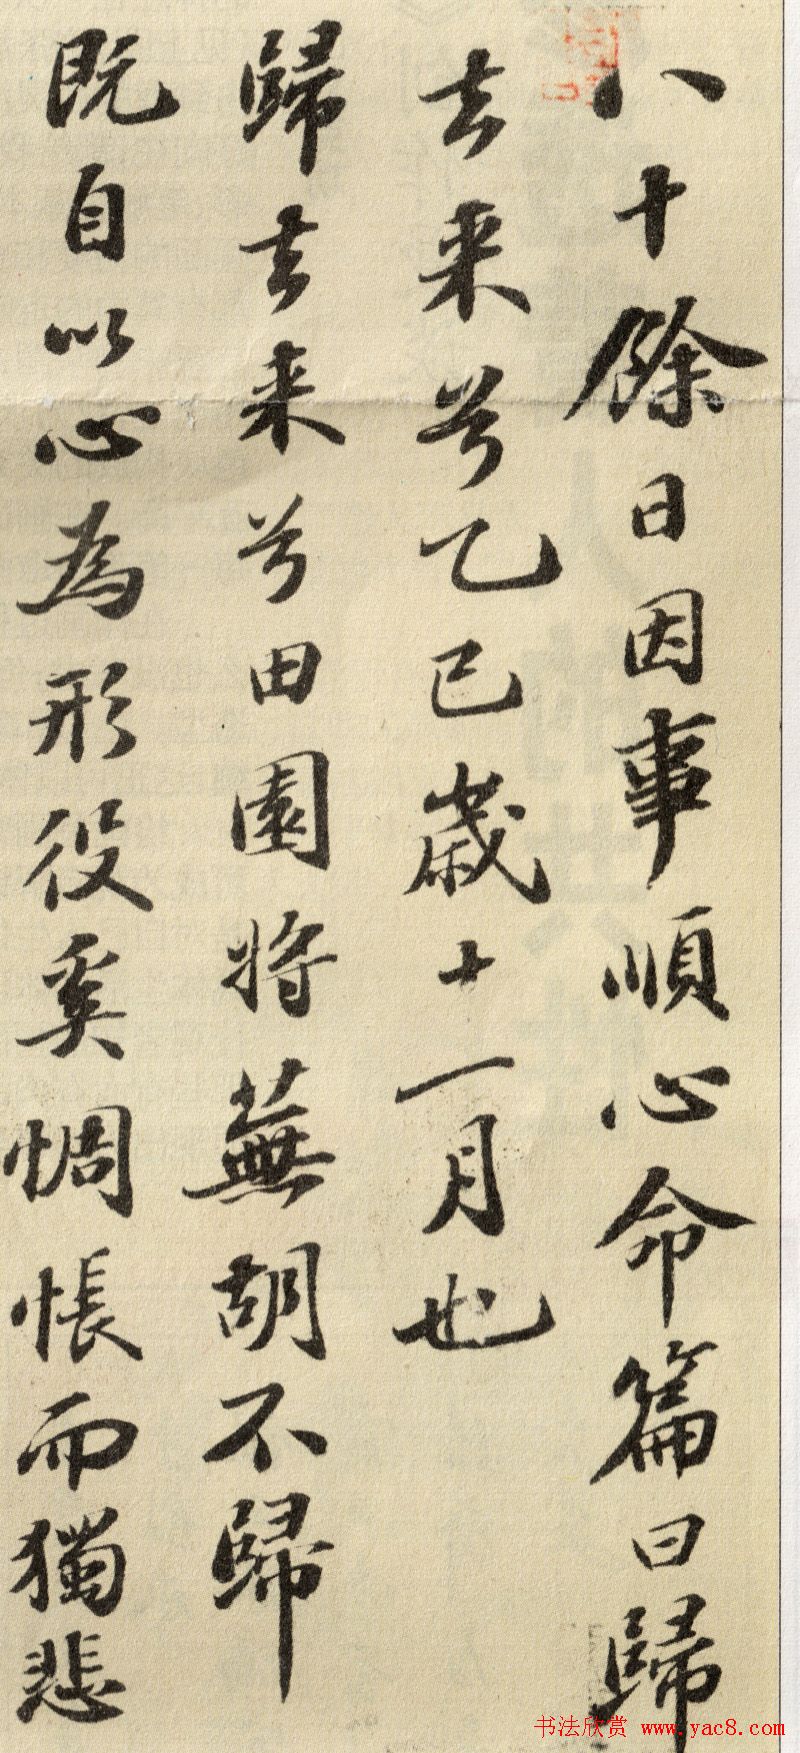 八十餘日因事順心命篇曰歸
去来兮乙巳歲十一月也
歸去来兮田園將蕪胡不歸
既自以心為形役奚惆悵而獨悲
书法欣赏 www.yac8.com